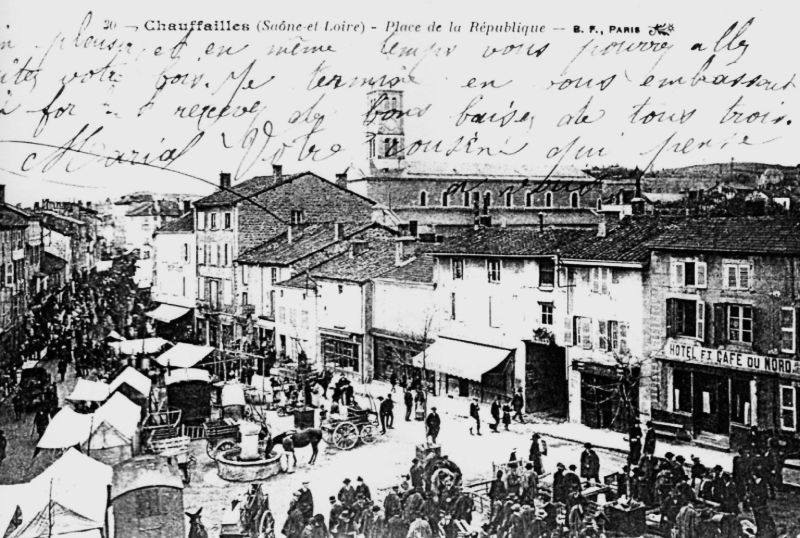 20 - Chauffailles (Saône-et Loire) - Place de la République - B. F., PARIS
plaisir et en même temps vous pourrez
votre Me termine en vous embrassant
for recevez de bons baisers de tous trois.
Votre qui pense
à vous
HOTEL ET CAFE DU NORD